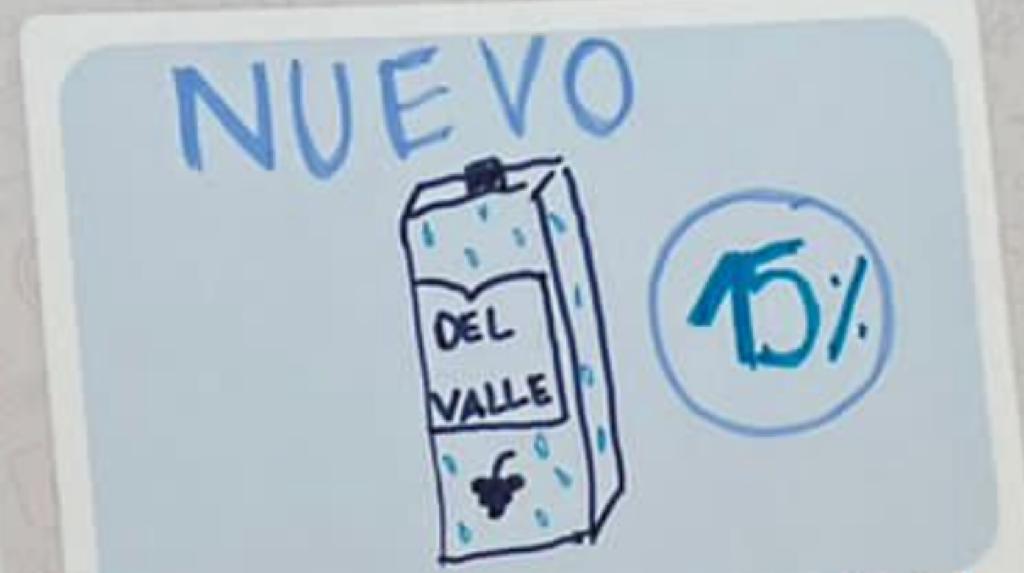 NUEVO
DEL
VALLE
15%